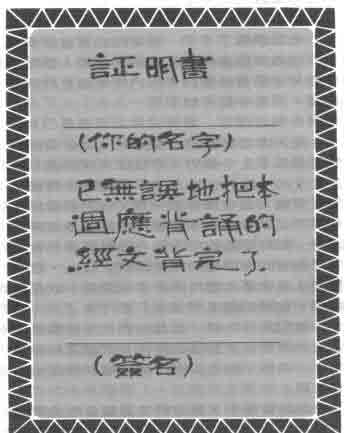 証明書
(你的名字)
已無誤地把本
週應背誦的
經文背完了.
(簽名)